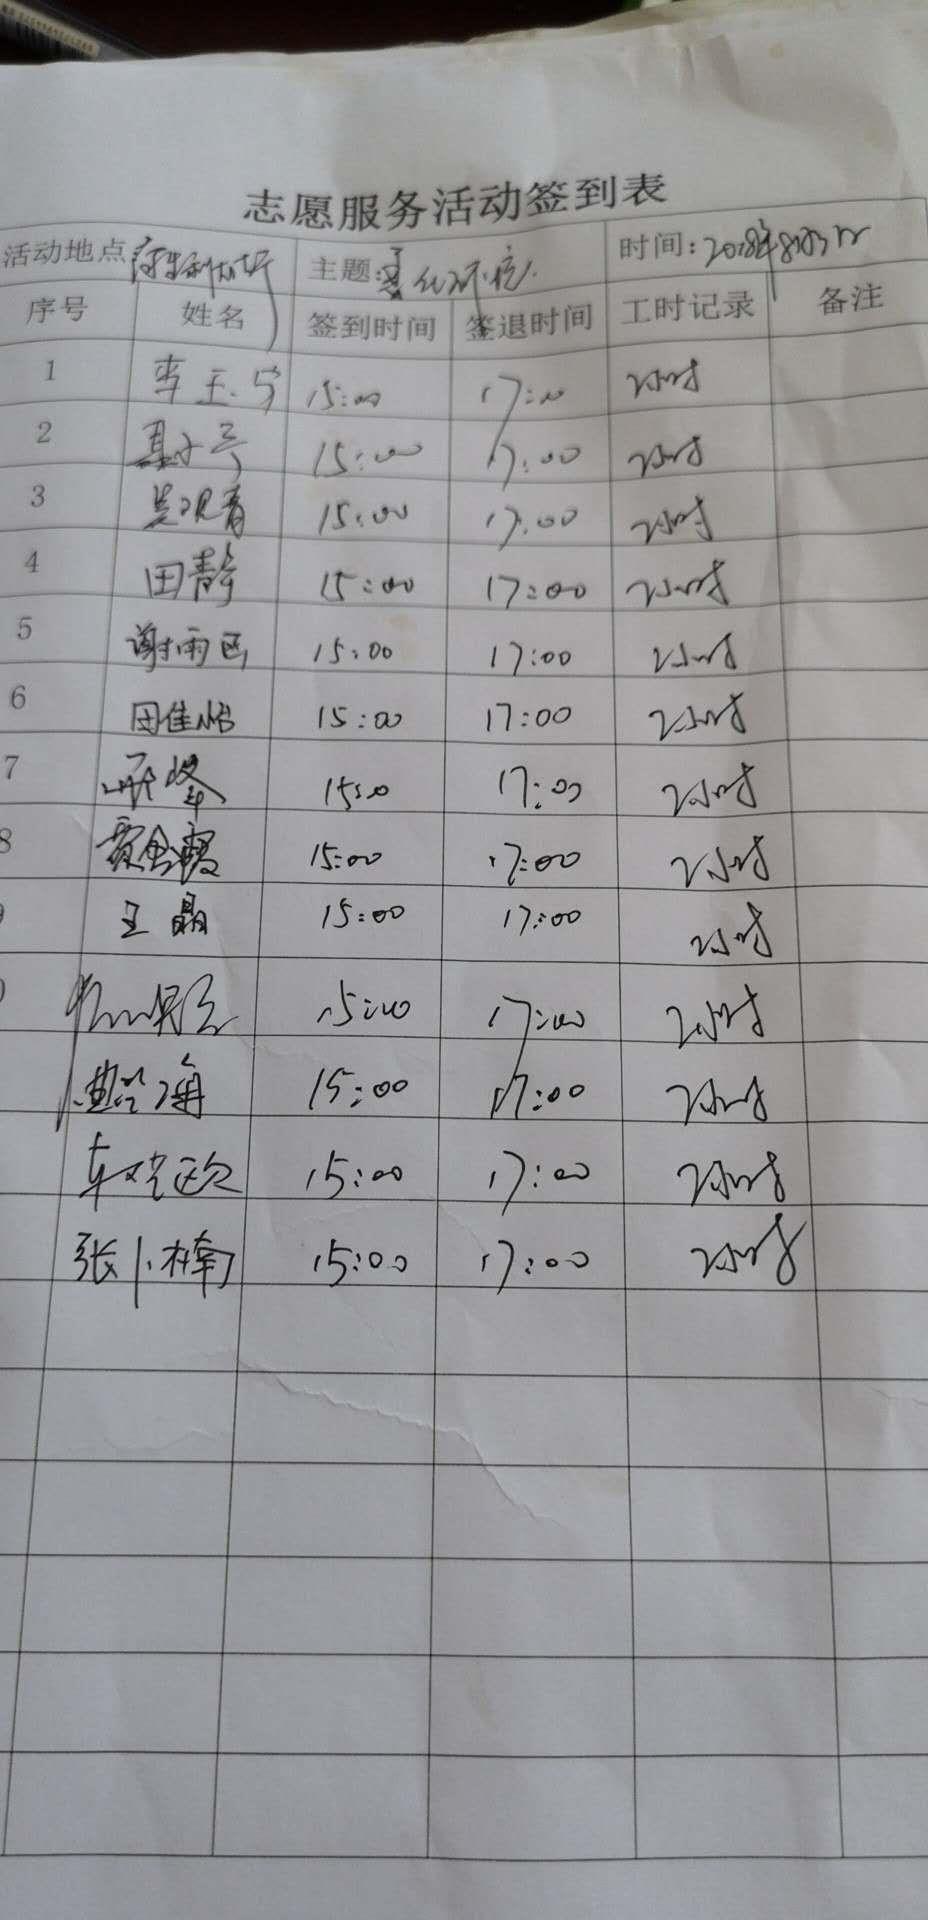 志愿服务活动签到表
活动地点 主题: 时间:2018年8月3日
序号 姓名 签到时间 签退时间 工时记录 备注
1 李玉 15:00 17:00 2小时
2 15:00 17:00 2小时
3 吴观青 15:00 17:00 2小时
4 田静 15:00 17:00 2小时
5 谢雨 15:00 17:00 2小时
6 田佳怡 15:00 17:00 2小时
7 15:00 17:00 2小时
8 贾金霞 15:00 17:00 2小时
王晶 15:00 17:00 2小时
15:00 17:00 2小时
15:00 17:00 2小时
车 15:00 17:00 2小时
张小楠 15:00 17:00 2小时